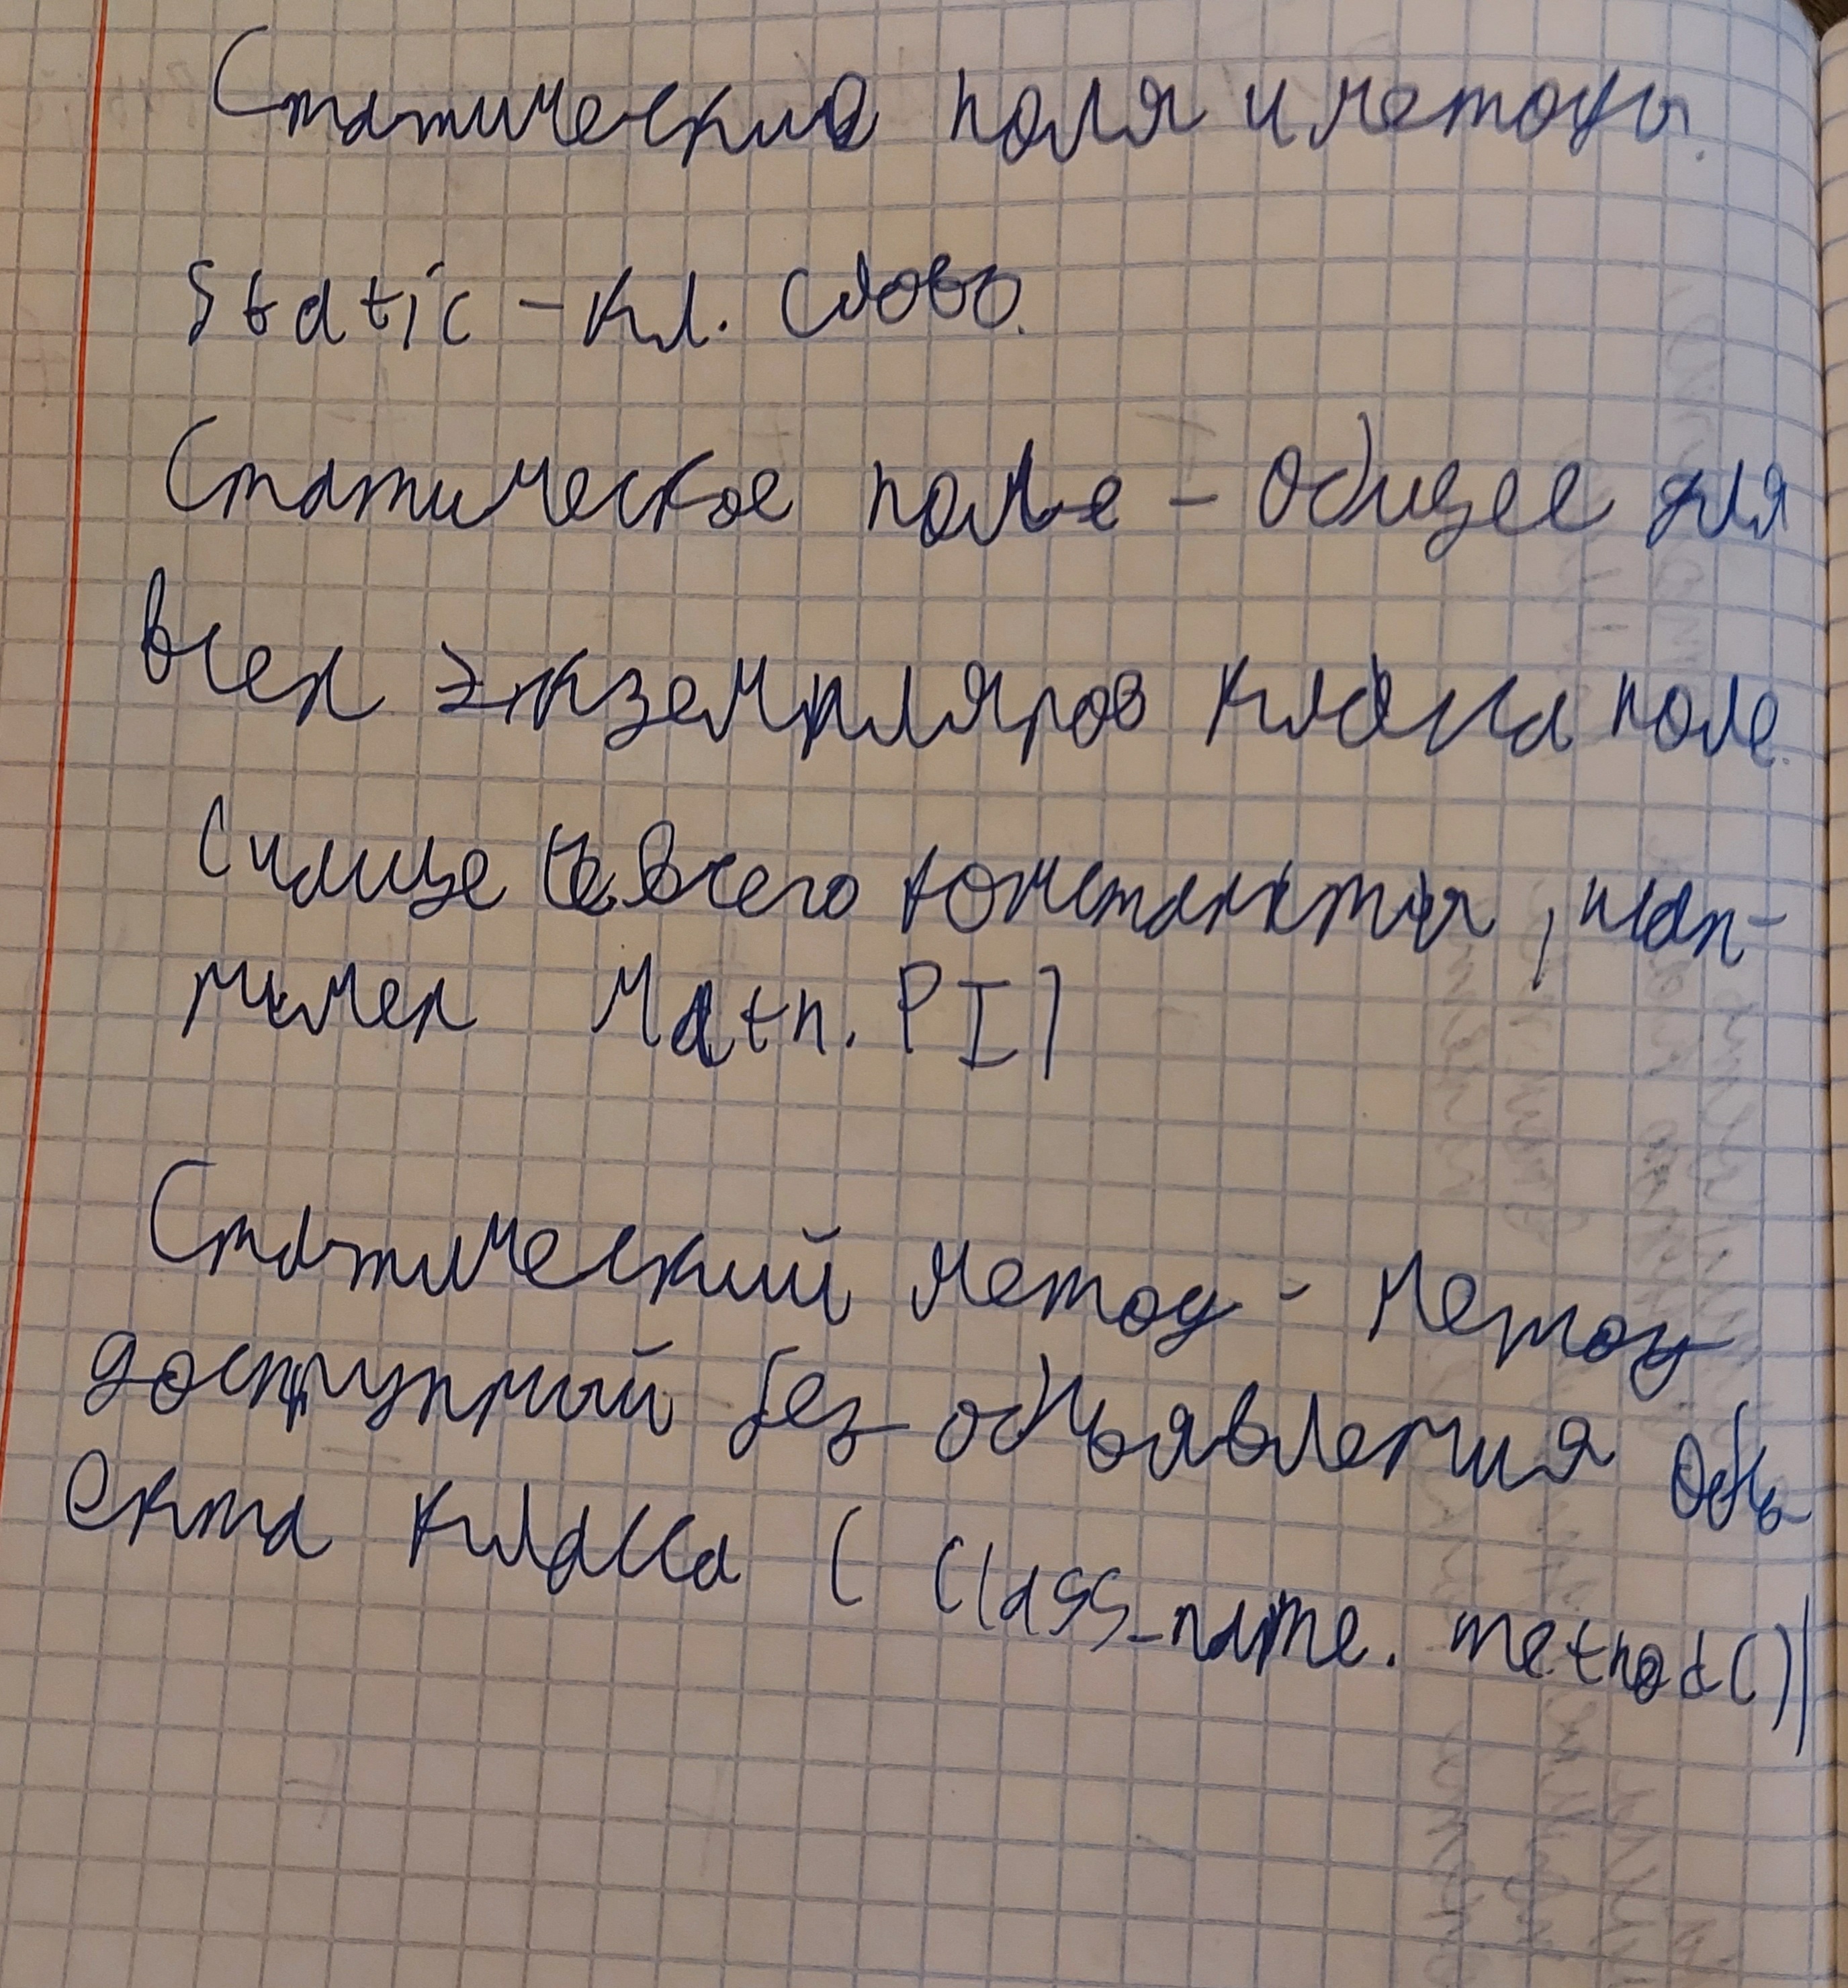 Статические поля и методы.
Static – кл. слово.
Статическое поле – общее для
всех экземпляров класса поле.
(чаще всего константы, нап-
ример Math.PI)
Статический метод - метод
доступный без объявления объ-
екта класса ( Class_name. method())